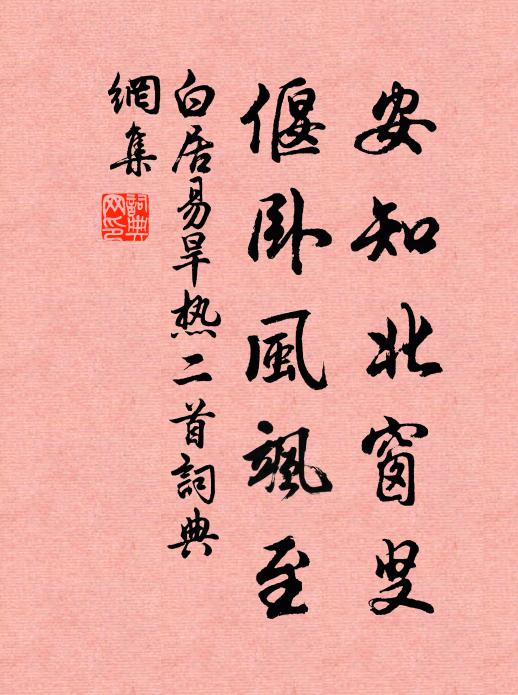 安知北窗叟
偃卧風颯至
白居易旱热二首詞典
網集
詞典
网印